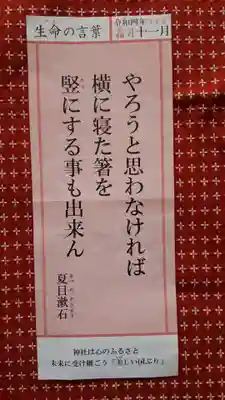 生命の言葉
令和四年
霜月
十一月
やろうと思わなければ
横に寝た箸を
竪にする事も出来ん
夏目漱石
なつめそうせき
神社は心のふるさと
未来に受け継ごう「美しい国ぶり」